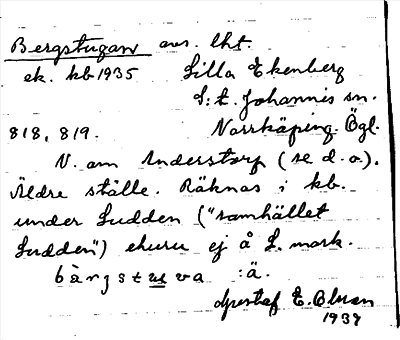 Bergstugan avs. lht.
ek. kb 1935 Lilla Ekenberg
S:t. Johannis sn.
818, 819. Norrköping. Ögl.
N. om Anderstorp (se d. o.).
Äldre ställe. Räknas i kb.
under Sudden ("samhället
Sudden") ehuru ej å S. mark.
:ä.
Gustaf E. Olsson
1939